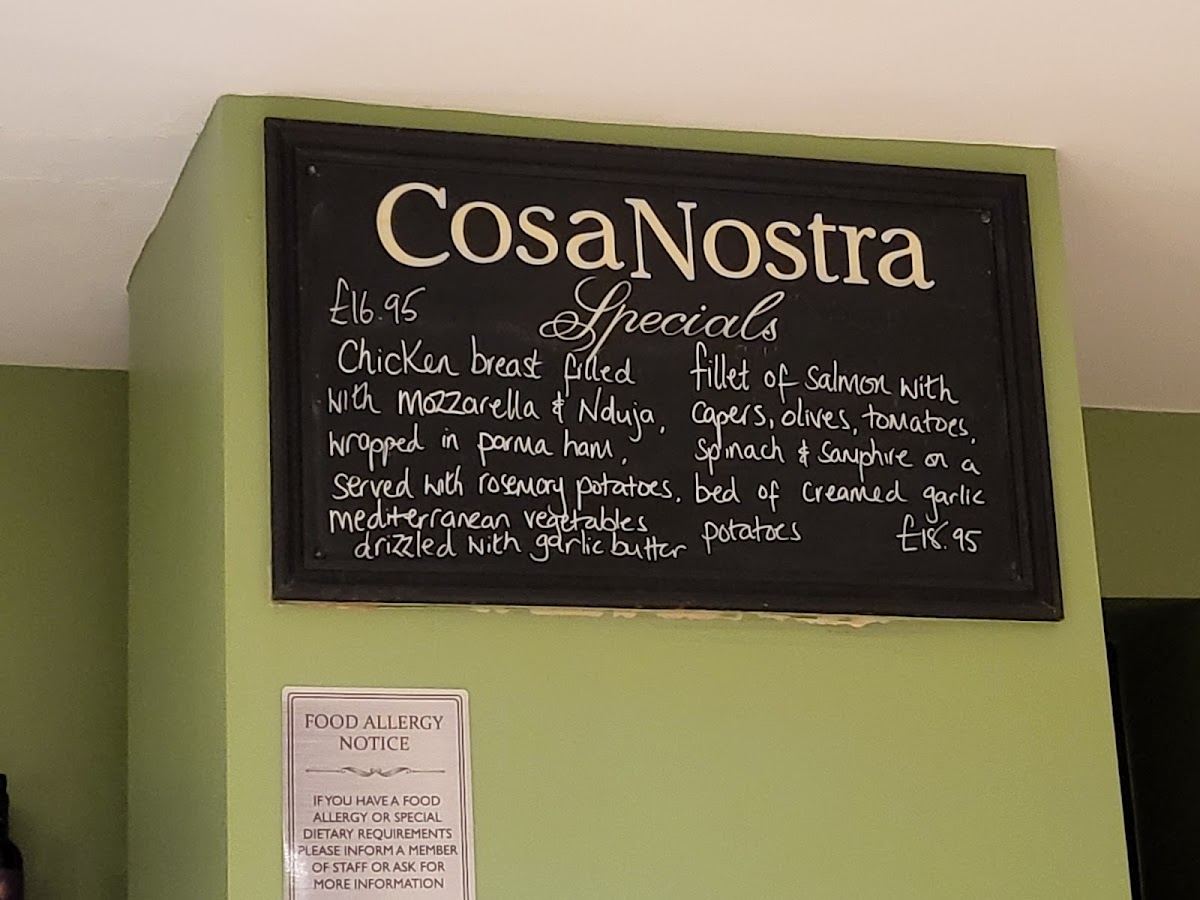 CosaNostra
Specials
£16.95
Chicken breast filled
with mozzarella & Nduja,
wrapped in parma ham,
served with rosemary potatoes,
mediterranean vegetables
drizzled with garlic butter
fillet of salmon with
capers, olives, tomatoes,
spinach & samphire on a
bed of creamed garlic
potatoes £18.95
FOOD ALLERGY
NOTICE
IF YOU HAVE A FOOD
ALLERGY OR SPECIAL
DIETARY REQUIREMENTS
PLEASE INFORM A MEMBER
OF STAFF OR ASK FOR
MORE INFORMATION